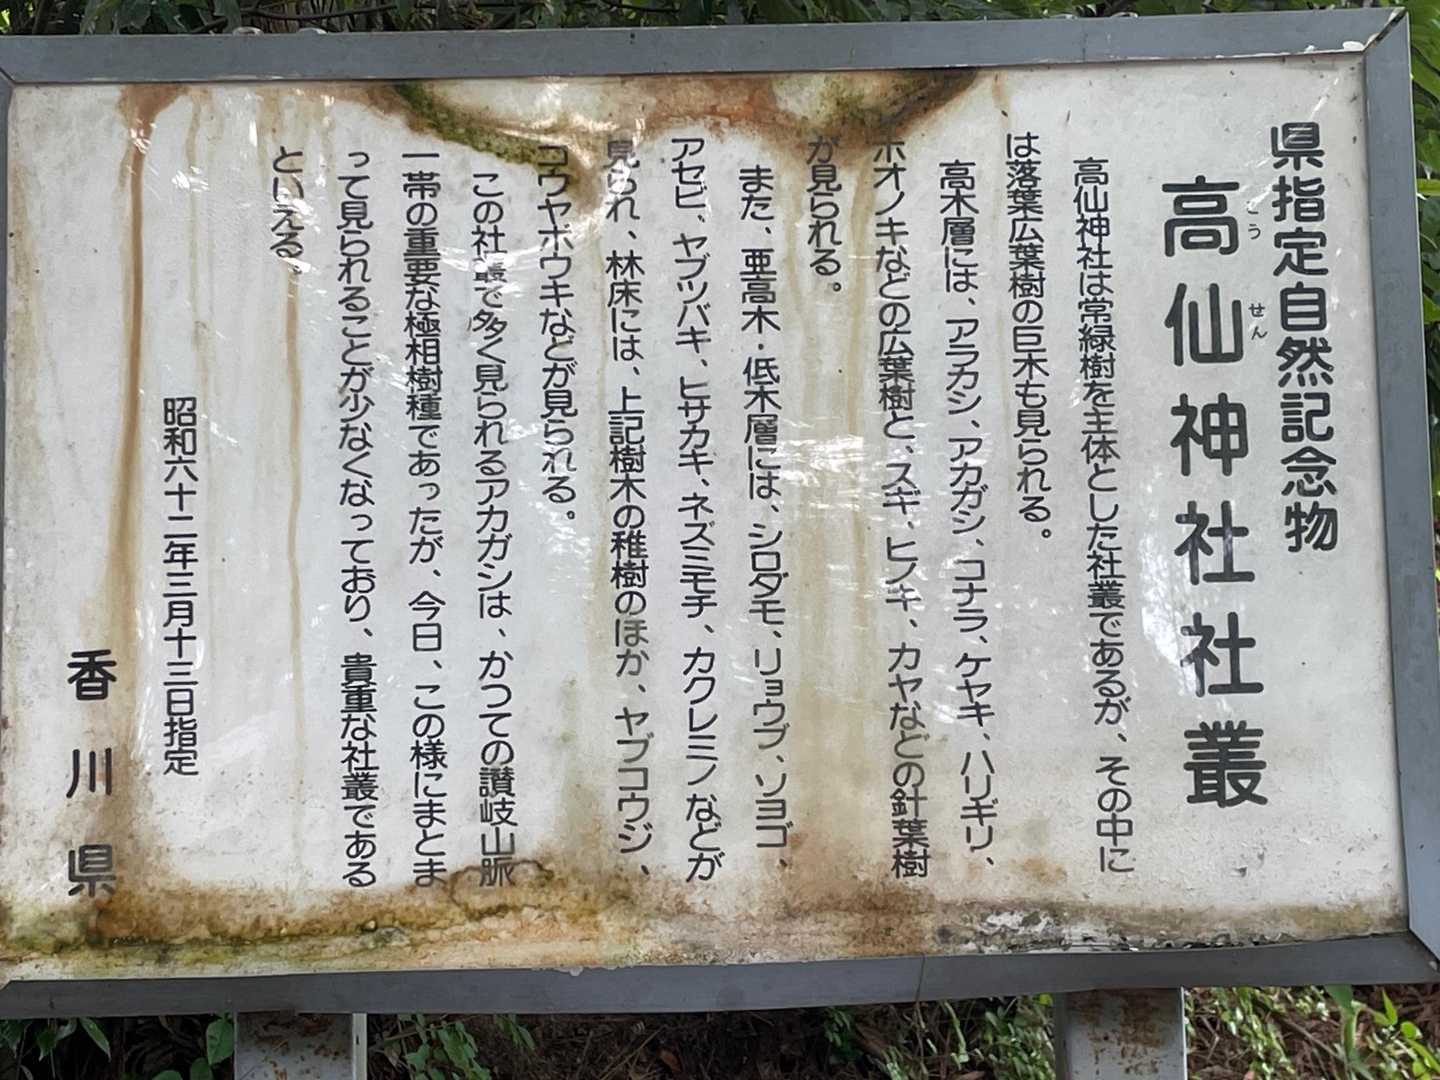 県指定自然記念物
高仙神社社叢
こうせん
高仙神社は常緑樹を主体とした社叢であるが、その中に
は落葉広葉樹の巨木も見られる。
高木層には、アラカシ、アカガシ、コナラ、ケヤキ、ハリギリ、
ホオノキなどの広葉樹と、スギ、ヒノキ、カヤなどの針葉樹
が見られる。
また、亜高木・低木層には、シロダモ、リョウブ、ソヨゴ、
アセビ、ヤブツバキ、ヒサカキ、ネズミモチ、カクレミノなどが
見られ、林床には、上記樹木の稚樹のほか、ヤブコウジ、
コウヤボウキなどが見られる。
この社叢で多く見られるアカガシは、かつての讃岐山脈
一帯の重要な極相樹種であったが、今日、この様にまとま
って見られることが少なくなっており、貴重な社叢である
といえる。
昭和六十二年三月十三日指定
香川県